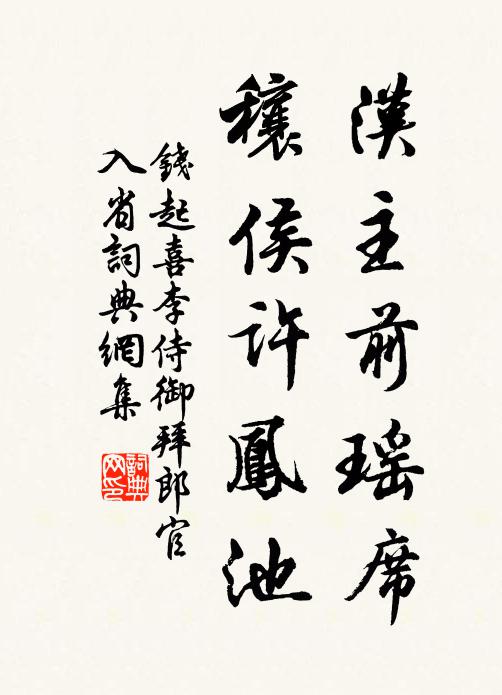 漢主前瑤席
穰侯許鳳池
錢起喜李侍御拜郎官
入省詞典網集
詞典網印